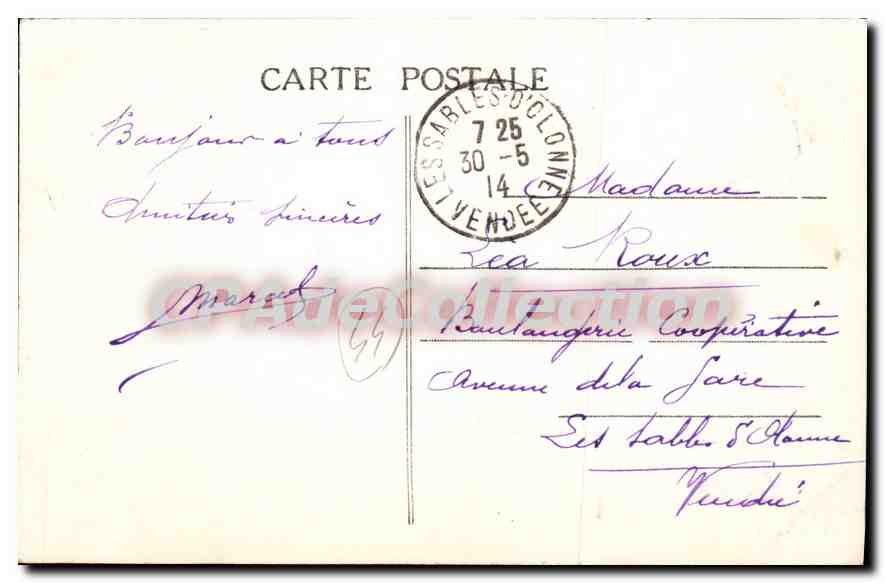 CARTE POSTALE
Bonjour a tous
Amitiés sincères
Marcel
44
LES SABLES-D'OLONNE
7 25
30 -5
14
VENDÉE
Madame
Léa Roux
CPAdeCollection
Boulangerie Coopérative
Avenue de la Gare
Les Sables d'Olonne
Vendée